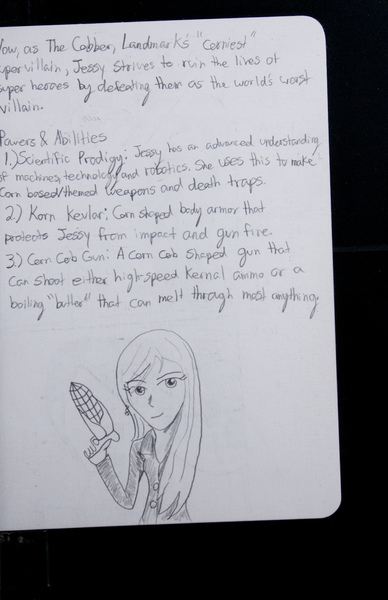 Now, as The Cobber, Landmark's "Corniest"
supervillain, Jessy strives to ruin the lives of
super heroes by defeating them as the world's worst
villain.
Powers & Abilities
1.) Scientific Prodigy: Jessy has an advanced understanding
of machines, technology and robotics. She uses this to make
Corn based/themed weapons and death traps.
2.) Korn Kevlar: Corn shaped body armor that
protects Jessy from impact and gunfire.
3.) Corn Cob Gun: A Corn Cob shaped gun that
can shoot either high-speed Kernal ammo or a
boiling "butter" that can melt through most anything.